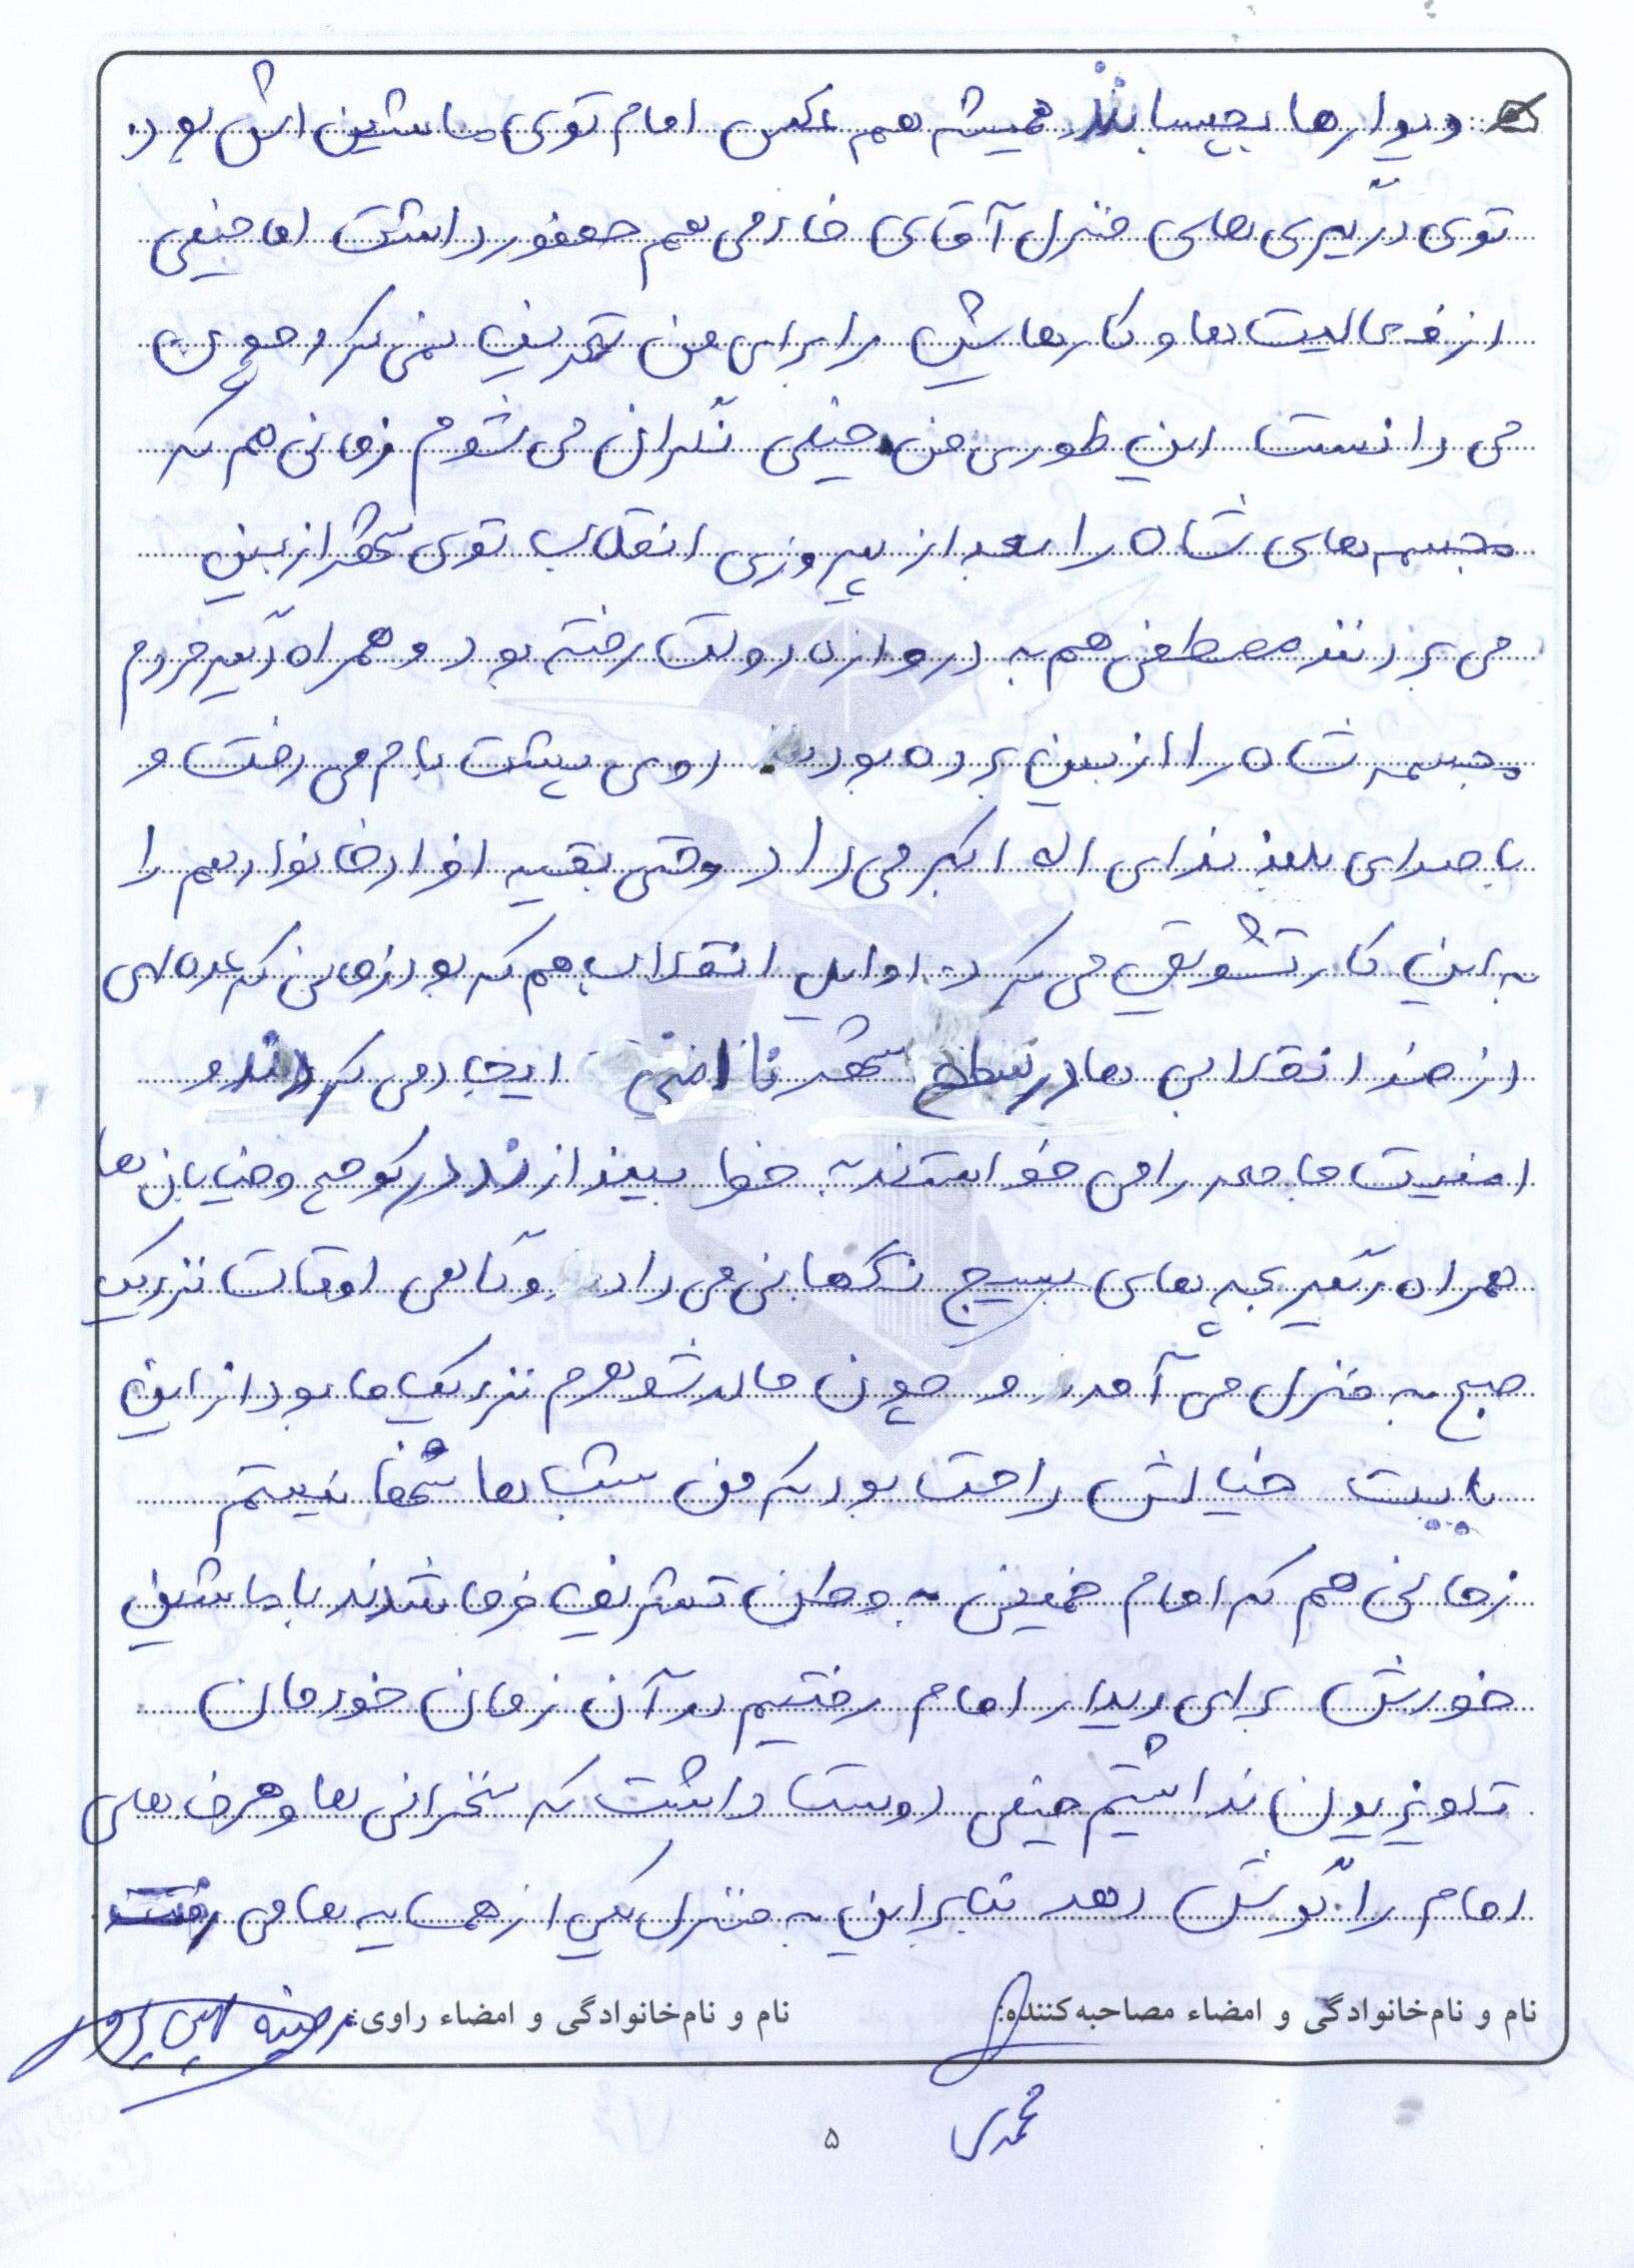 دیوارها بچسباند همیشه هم عکس امام توی ماشین اش بود.
توی درگیری های منزل آقای خادمی هم حضور داشت اما خیلی
از فعالیت ها و کارهایش را برای من تعریف نمی کرد چون
می دانست این طوری من خیلی نگران می شوم زمانی هم که
مجسمه های شاه را بعد از پیروزی انقلاب توی شهر از بین
می بردند مصطفی هم به دروازه دولت رفته بود و همراه دیگر مردم
مجسمه شاه را از بین برده بود. روی پشت بام می رفت و
با صدای بلند ندای اله اکبر می داد وقتی بقیه افراد خانواده هم را
به این کار تشویق می کرد. اوایل انقلاب هم که بود زمانی که عده ای
از ضد انقلابی ها در سطح شهر نا امنی ایجاد می کردند و
امنیت جامعه را می خواستند به خطر بیندازند در کوچه و خیابان ها
همراه دیگر بچه های بسیج نگهبانی می داد و گاهی اوقات نزدیک
صبح به منزل می آمد و چون مادر شوهرم نزدیک ما بود از این
بابت خیالش راحت بود که من شب ها تنها نیستم
زمانی هم که امام خمینی به وطن تشریف فرما شدند با ماشین
خودش برای دیدار امام رفتیم در آن زمان خودمان
تلویزیون نداشتیم خیلی دوست داشت که سخنرانی ها و حرف های
امام را گوش دهد بنابراین به منزل یکی از همسایه ها می رفت
نام و نام‌خانوادگی و امضاء مصاحبه‌کننده:
نام و نام‌خانوادگی و امضاء راوی:
محمدی
۵